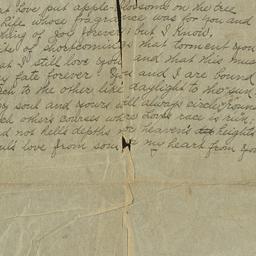 at Love put apple-blossoms on the tree
Life whose fragrance was for you and
thing of God forever; but I know,
ite of shortcomings that torment you
at I still love you and that this must
y fate forever! You and I are bound
ch to the other like daylight to the sun,
y soul and yours will always circle round
ch others courses where Love's race is run,
nd not hell's depths nor heaven's heights
uld love from soul or my heart from you